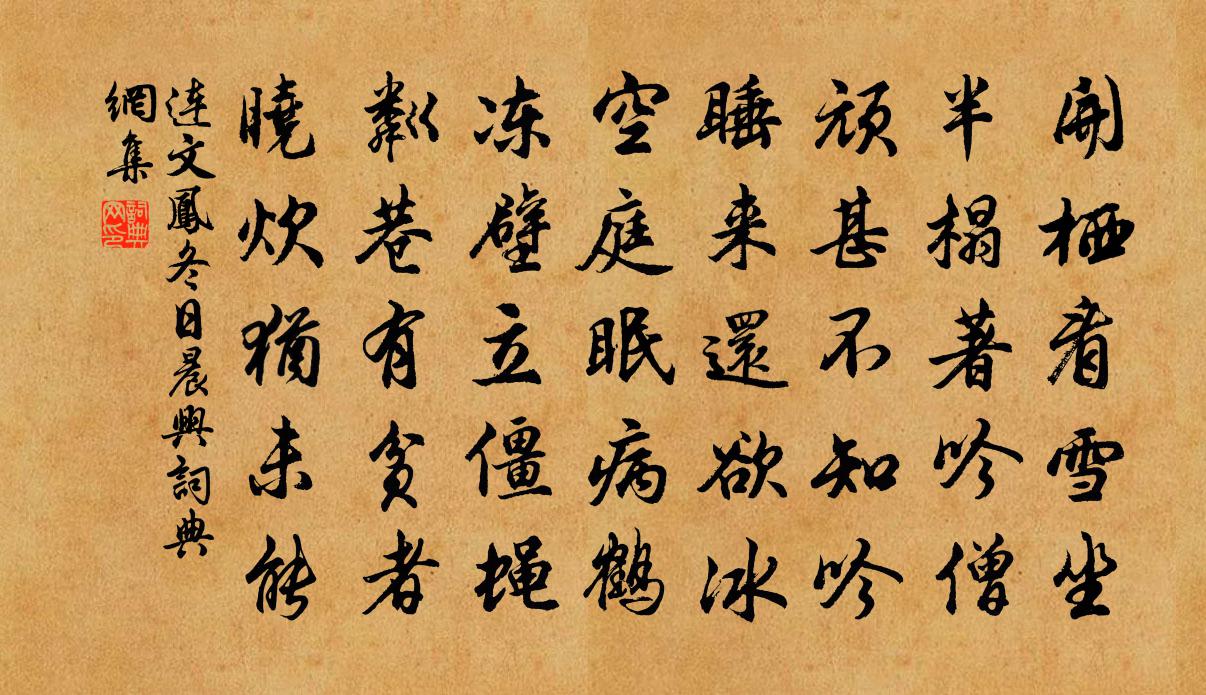 開栖看雪坐
半榻著吟僧
頑甚不知吟
睡来還欲冰
空庭眠病鶴
冻壁立僵蝇
鄰巷有貧者
曉炊猶未能
連文鳳冬日晨興詞典
網集
詞典
网印